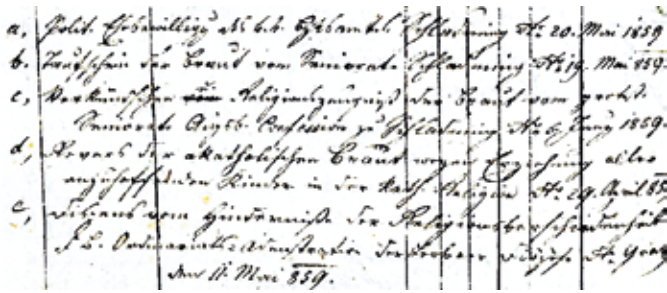 a, Polit. Ehebewilligg des k.k. Bezirksamtes Schladming dto. 20. Mai 1859
b. Taufschein der Braut vom Seniorate Schladming dto. 19. Mai 859.
c, Verkündschein Religionszeugniß der Braut vom protest.
Seniorate Augsb. Confession zu Schladming dto. 6. Juny 1859.
d, Revers der akatholischen Braut wegen Erziehung aller
anzuhoffenden Kinder in der kath. Religion dto. 29. April 859
e, Dispens vom Hinderniße der Religionsverschiedenheit
F. b. Ordinariats Diöcese dto. Graz
den 11. Mai 859.